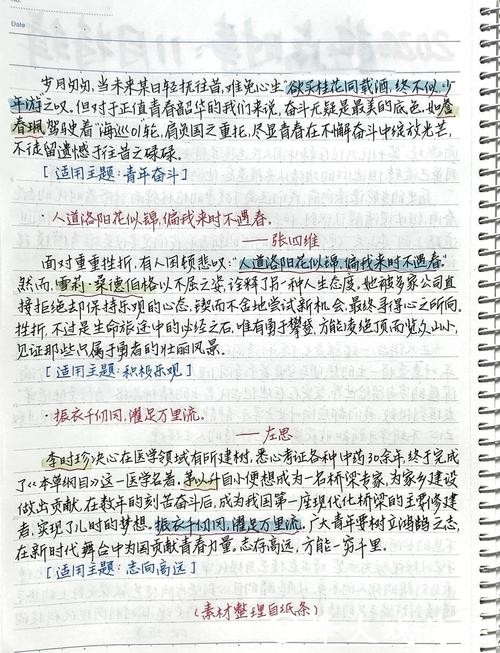 No.
Date
岁月匆匆,当未来某日轻抚往昔,难免心生“欲买桂花同载酒,终不似,少
年游”之叹。但对于正值青春韶华的我们来说,奋斗无疑是最美的底色。如詹
春珮驾驶着“海巡01”轮,肩负国之重托,尽显青春在不懈奋斗中绽放光芒,
不徒留遗憾于往昔之碌碌。
[适用主题:青年奋斗]
·人道洛阳花似锦,偏我来时不遇春。
——张四维
面对重重挫折,有人困顿悲叹:“人道洛阳花似锦,偏我来时不遇春。”
然而,雪莉·桑德伯格以不屈之姿,诠释了另一种人生态度。她被多家公司直
接拒绝却保持乐观的心态,锲而不舍地尝试新机会,最终寻得心之所向。
挫折,不过是生命旅途中的必经之石,唯有勇于攀登,方能凌绝顶而览众山小,
见证那些只属于勇者的壮丽风景。
[适用主题:积极乐观]
·振衣千仞冈,濯足万里流。
——左思
李时珍决心在医学领域有所建树,悉心考证各种中药30余年,终于完成
了《本草纲目》这一医学名著。茅以升自小便想成为一名桥梁专家,为家乡建设
做出贡献,在数年的刻苦奋斗后,成为我国第一座现代化桥梁的主要修建
者,实现了儿时的梦想。振衣千仞冈,濯足万里流。广大青年要树立鸿鹄之志,
在新时代舞台中为国贡献青春力量。志存高远,方能一穷斗里。
[适用主题:志向高远]
(素材整理自纸条)